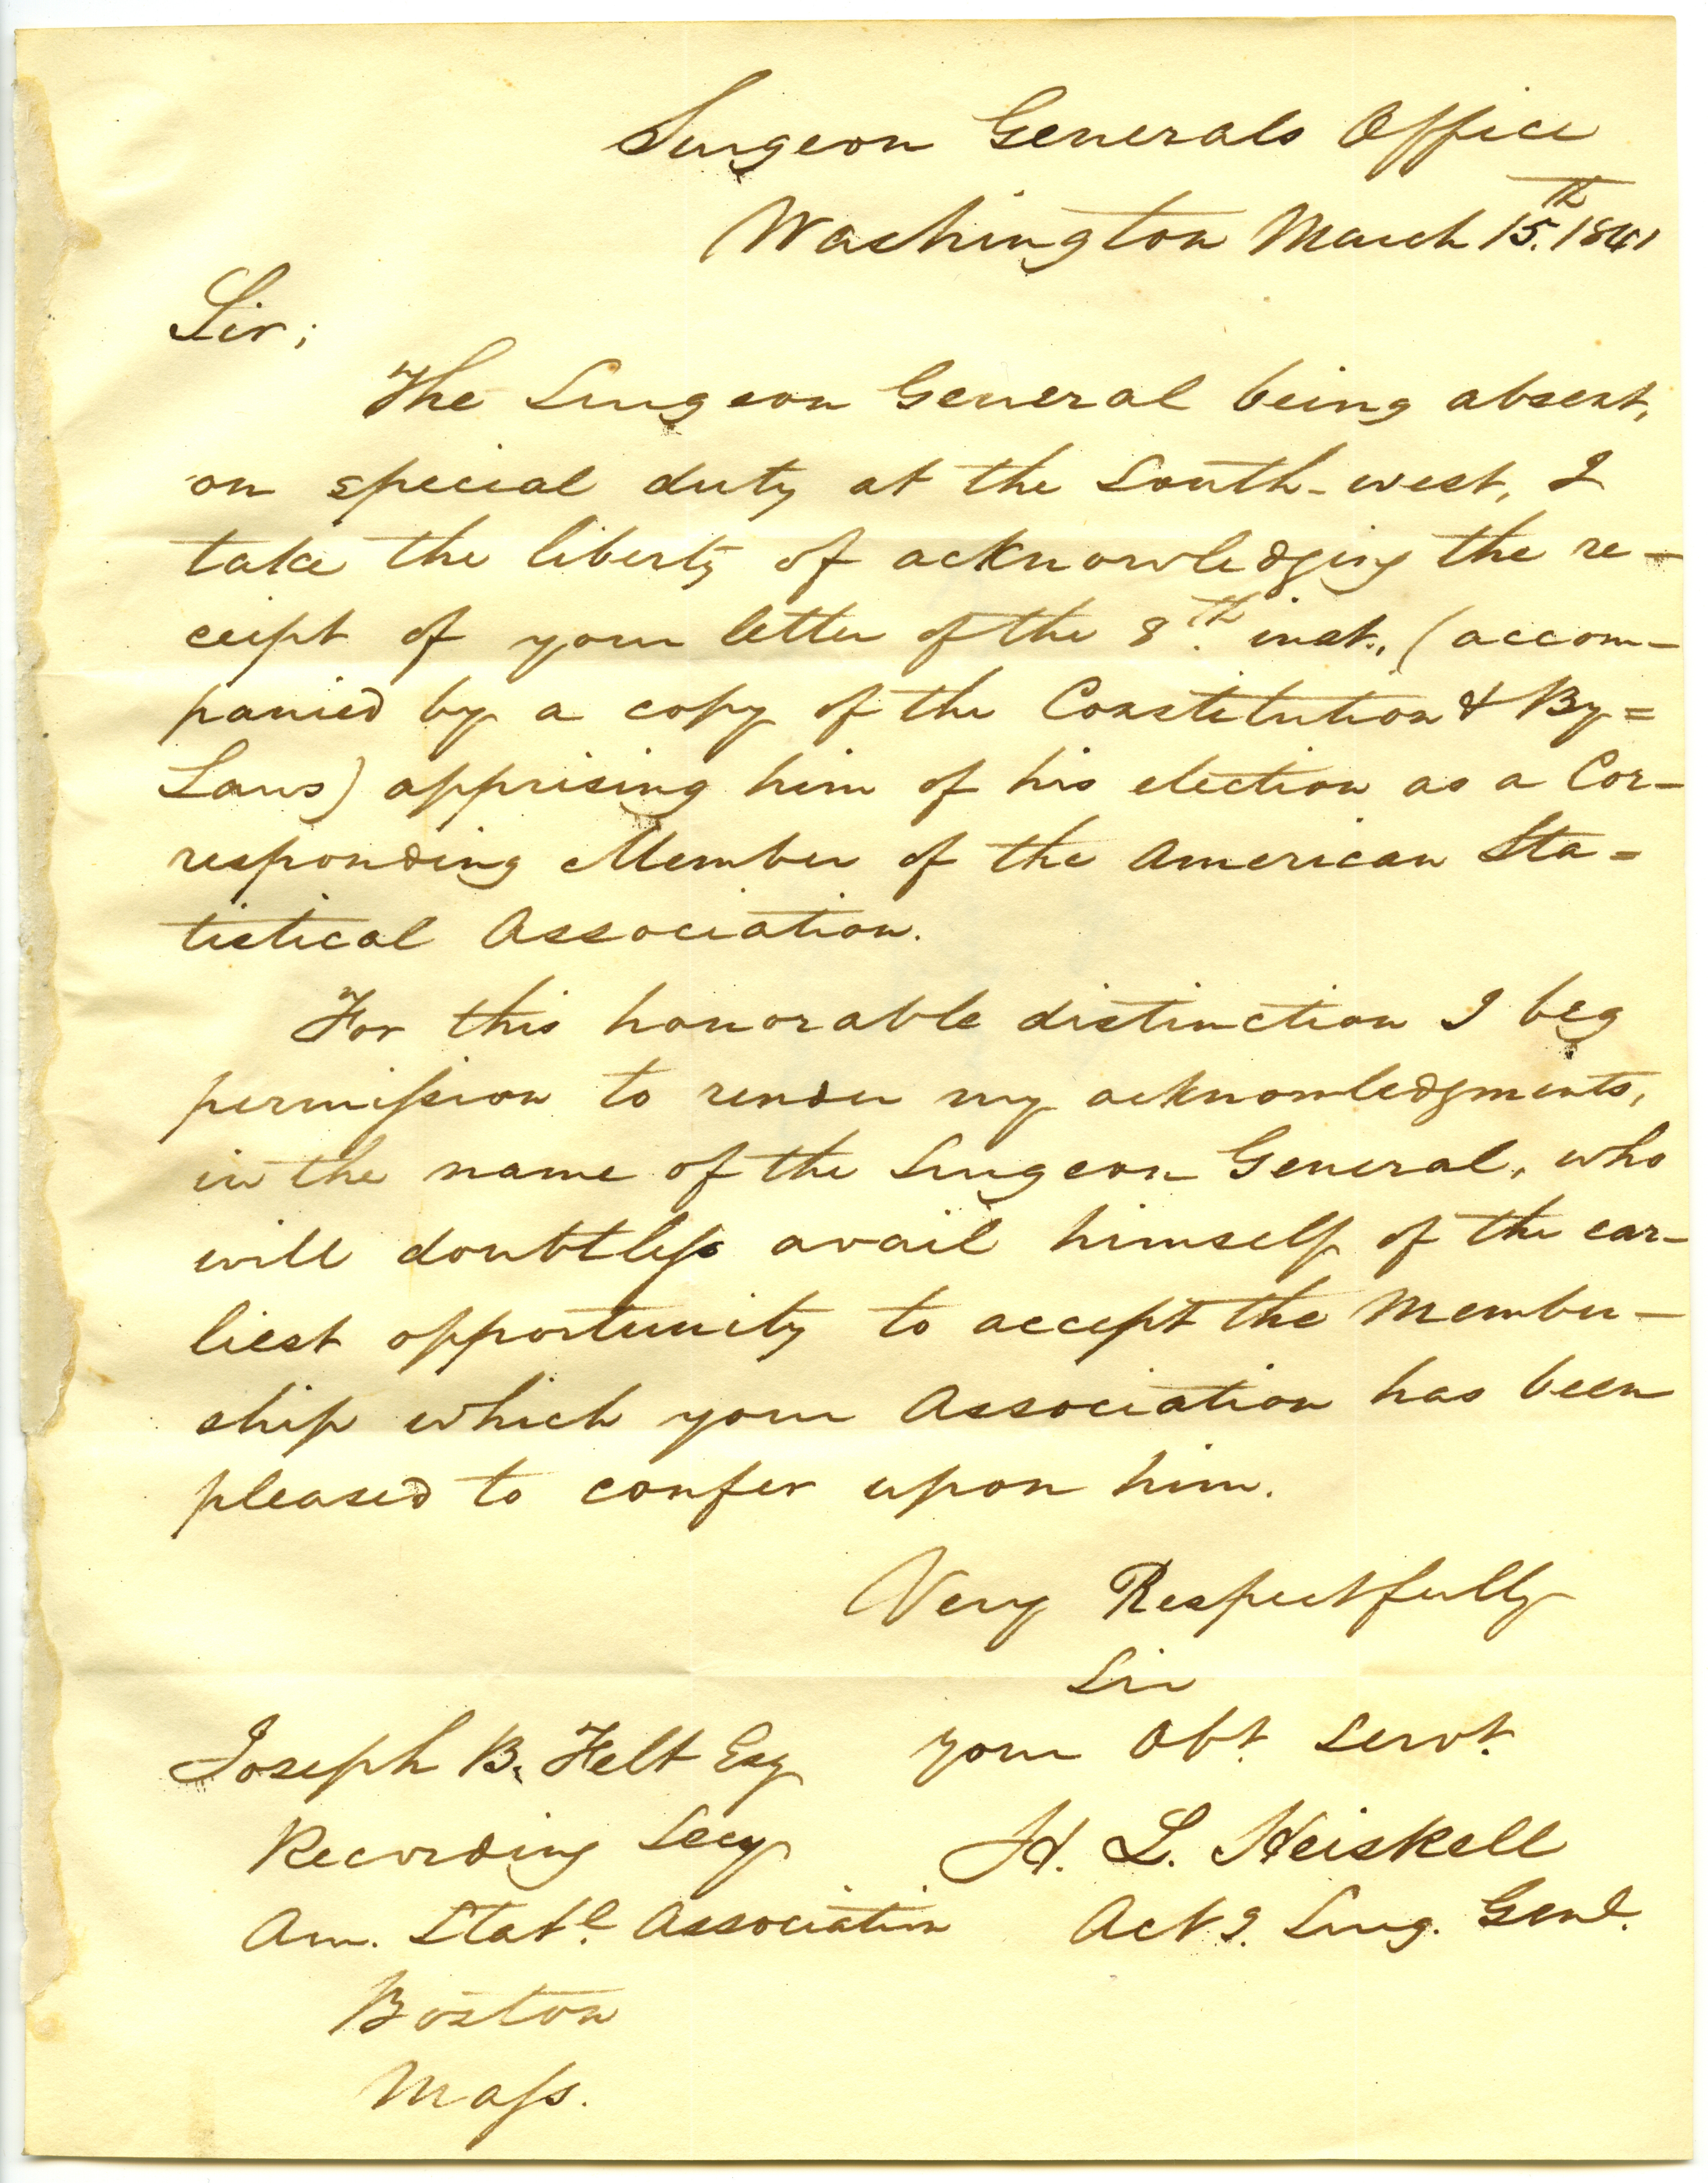 Surgeon Generals Office
Washington March 15.th 1841
Sir;
The Surgeon General being absent,
on special duty at the South-west, I
take the liberty of acknowledging the re-
ceipt of your letter of the 8.th inst., (accom-
panied by a copy of the Constitution & By=
Laws) apprising him of his election as a Cor-
responding Member of the American Sta=
tistical Association.
For this honorable distinction I beg
permission to render my acknowledgments,
in the name of the Surgeon General, who
will doubtless avail himself of the ear-
liest opportunity to accept the Member-
ship which your Association has been
pleased to confer upon him.
Very Respectfully
Sir
your Obt. Servt.
H. L. Heiskell
Actg. Surg. Genl.
Joseph B. Felt Esq
Recording Secy
Am. Statl. Association
Boston
Mass.